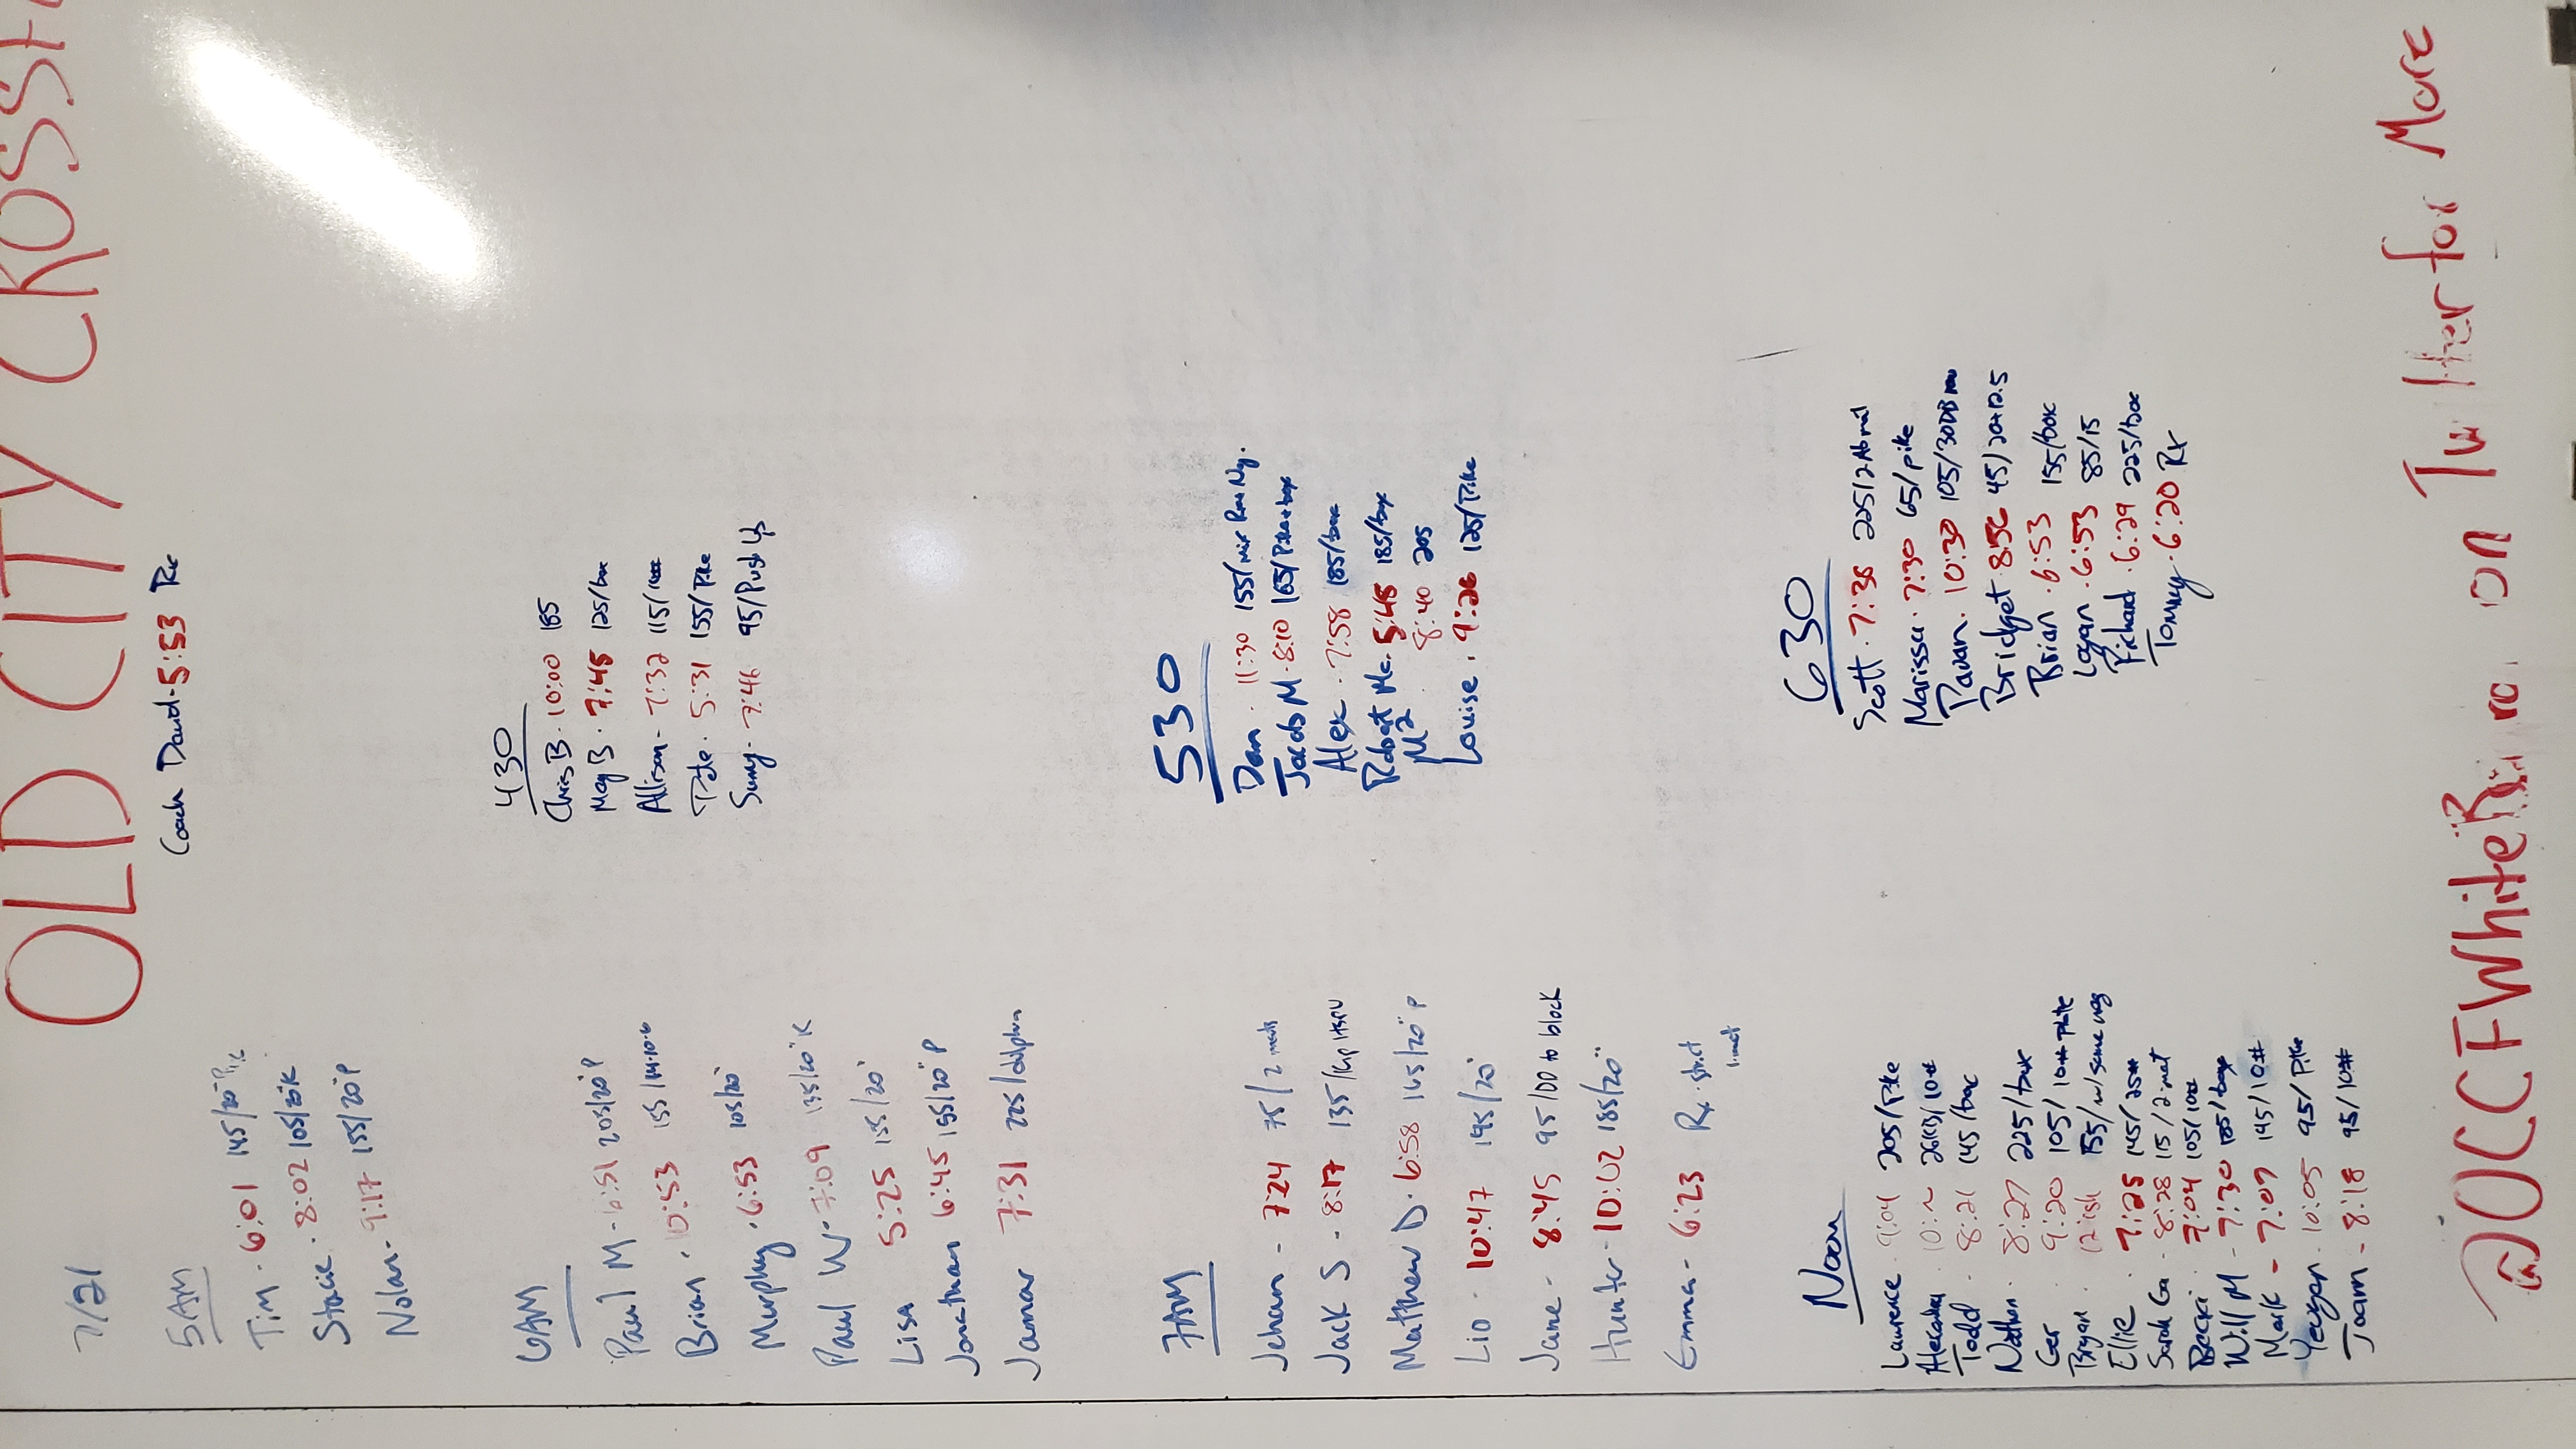 OLD CITY CROSSF
7/21
Coach David - 5:53 Rx
5AM
Tim - 6:01 145/20"
Stacie - 8:02 105/20"K
Nolan - 9:17 155/20"P
6AM
Paul M - 6:51 205/20"P
Brian - 10:53 155
Murphy - 6:53 105/20"
Paul W - 7:09 135/20"K
Lisa 5:25 155/20"
Jonathan 6:45 155/20"P
Jamar 7:31 225/dolphin
7AM
Jehan - 7:24 75/2 mats
Jack S - 8:17 135/Kip HSPU
Matthew D - 6:58 165/20"P
Lio - 10:47 195/20"
Jane - 8:45 95/DD to block
Hunter - 10:02 185/20"
Emma - 6:23 Rx strict
Noon
Laurence 9:04 205/Pike
10:
Todd 8:21 145/box
Nathan 8:27 225/box
Ger 9:20 105/10# plate
Bryan 12 ish 155/w/some neg
Ellie 7:25 145/25#
Sarah Ga 8:28 115/2 mat
Becki 7:04 105/10#
Will M - 7:30 185/box
Mark - 7:07 145/10#
10:05 95/Pike
Joann - 8:18 95/10#
430
Chris B - 10:00 185
Meg B - 7:45 125/box
Allison - 7:32 115/
Pete - 5:31 155/Pike
Sunny - 7:46 95/Push Up
530
Dan - 11:30 155/mix Rx+Ng.
Jacob M - 8:10 165/Pike+box
Alex - 7:58 185/box
Robert Mc - 5:45 185/box
M2 8:40 205
Louise - 9:26 125/Pike
630
Scott - 7:38 225/2 Ab mat
Marissa - 7:30 65/pike
Pavan - 10:30 105/30DB
Bridget - 8:56 45/20+12.5
Brian - 6:53 155/box
Logan - 6:53 85/15
Richard - 6:29 225/box
Tommy - 6:20 Rx
@OCCFWhiteBoard on Twitter for More